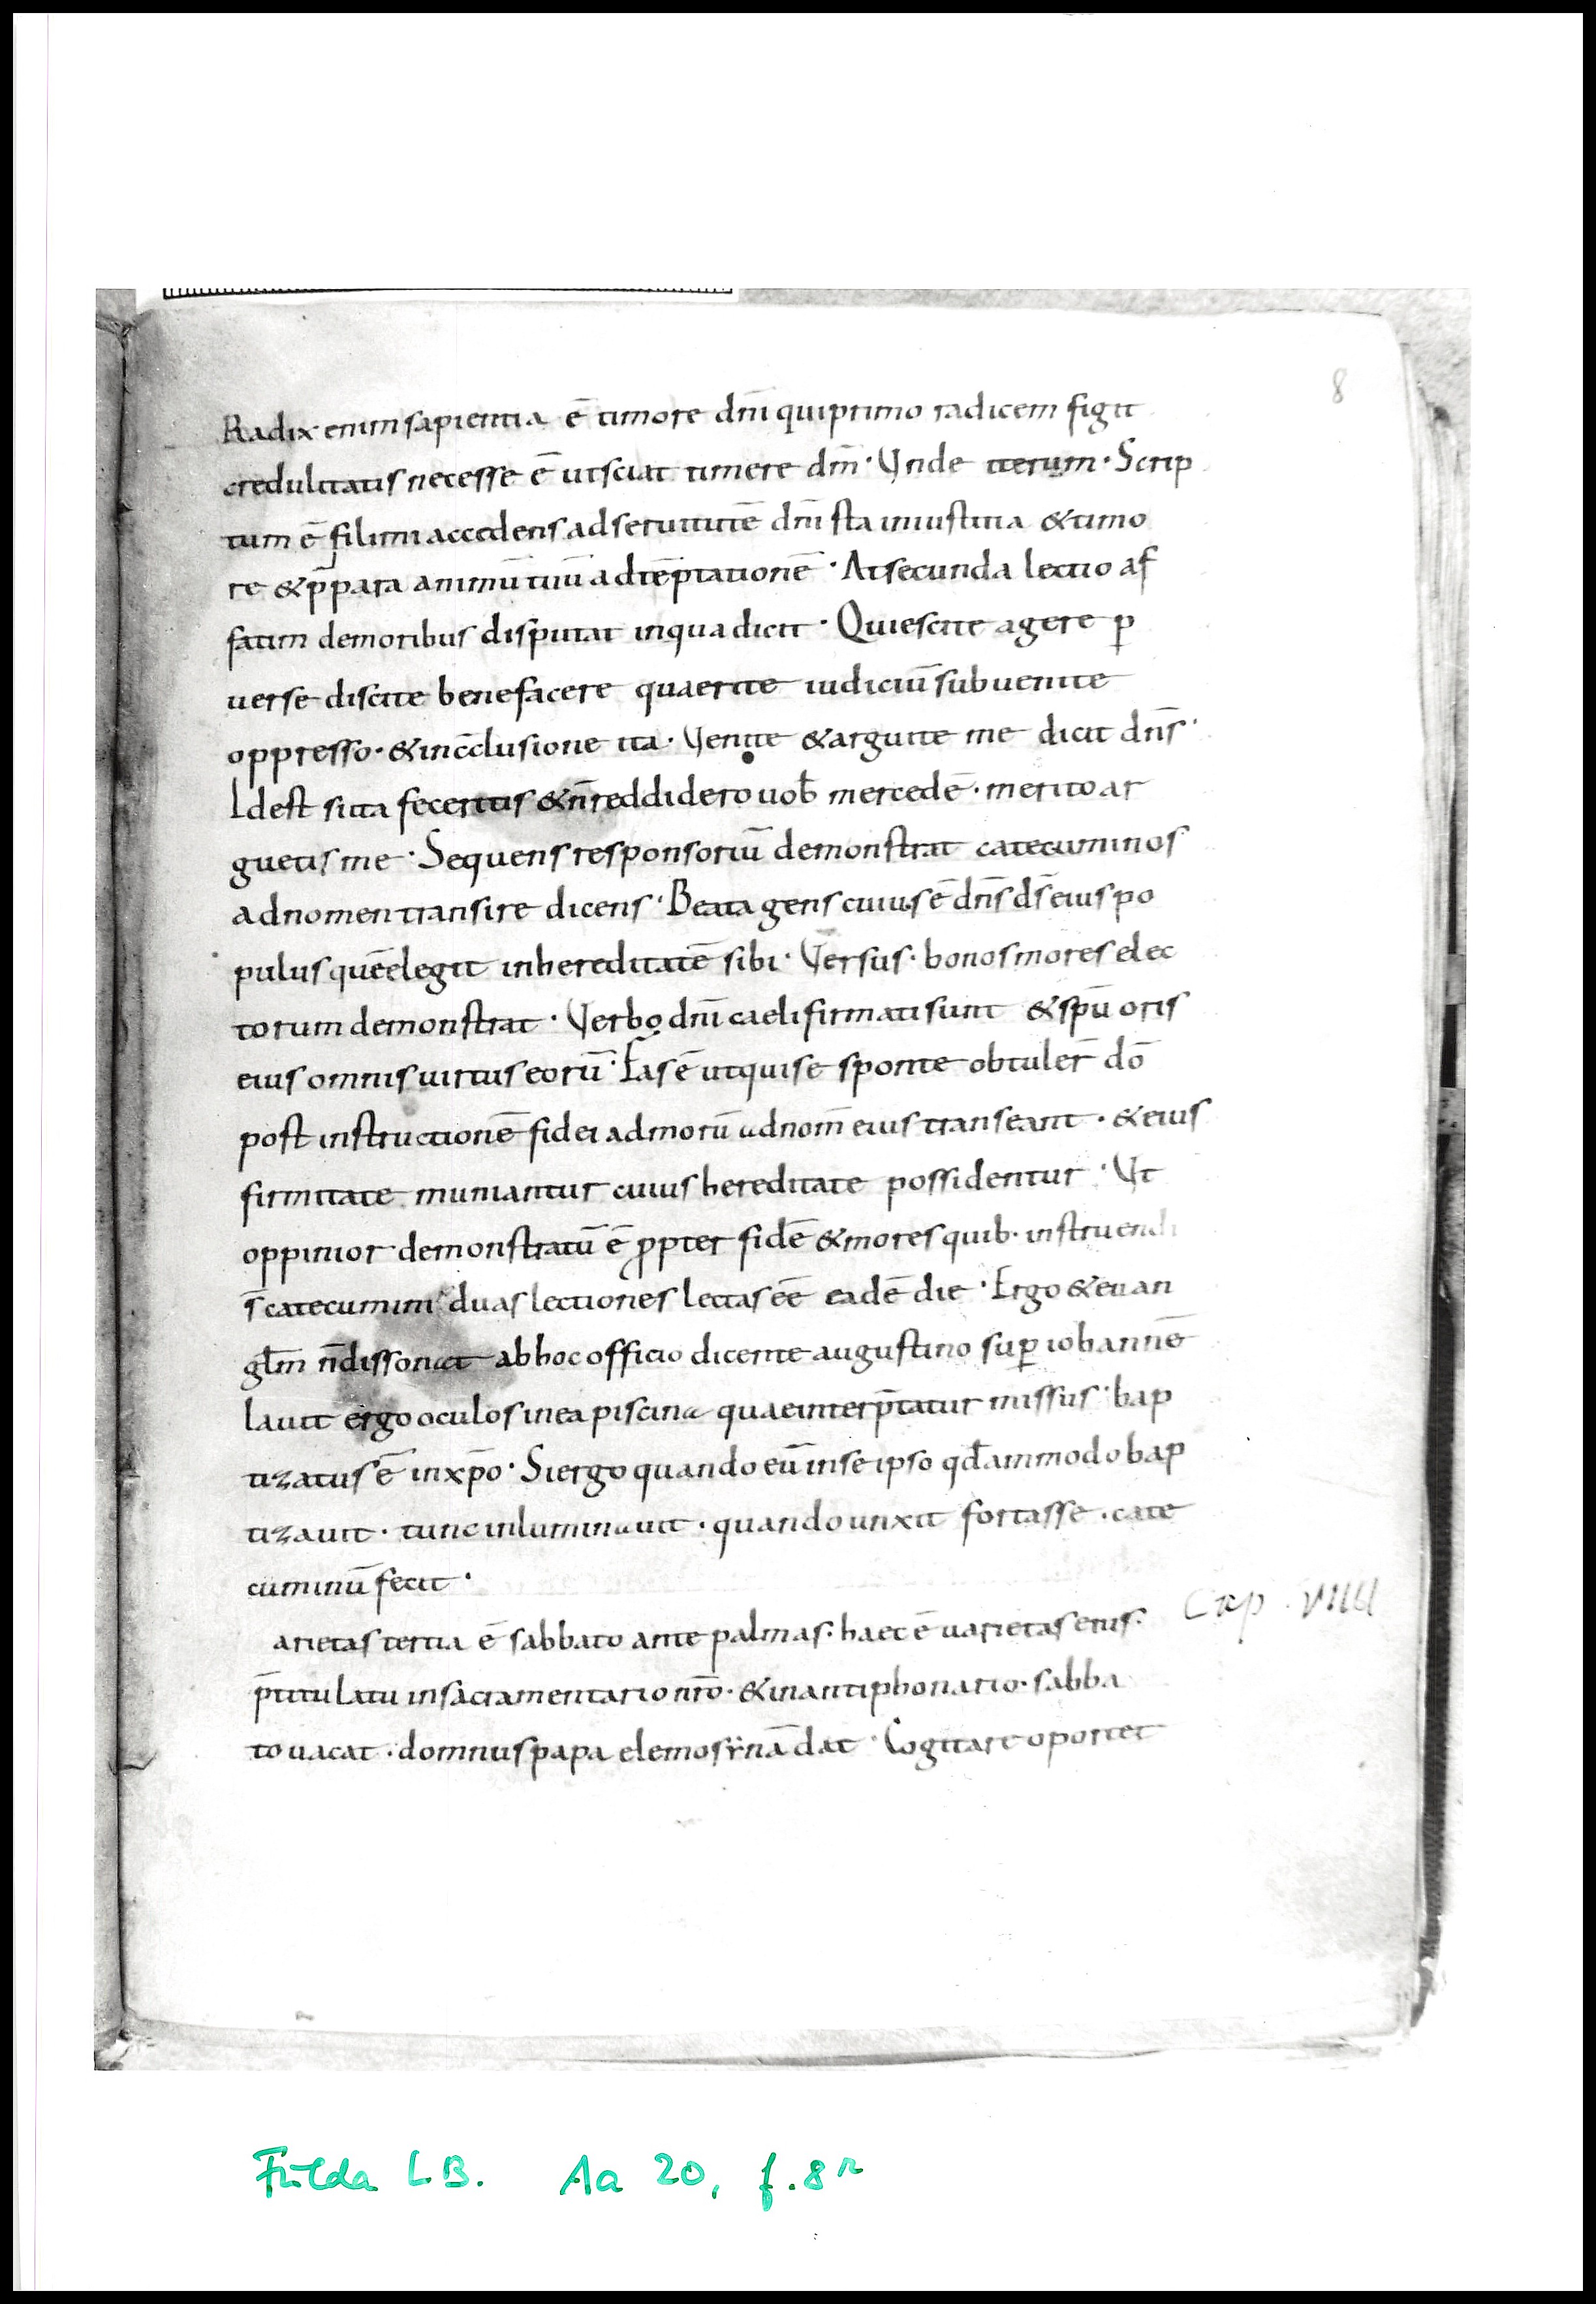 8
Radix enim sapientia ē timore dñi qui primo radicem figit
credulitatis necesse ē ut sciat timere dm̄· Unde iterum· Scrip
tum ē fili mi accedens ad seruitutē dñi sta in iustitia & timo
re & p̄para animū tuū ad tēptationē· At secunda lectio af
fatim de moribus disputat in qua dicit· Quiescite agere ꝑ
uerse discite benefacere quaerite iudiciū subuenite
oppresso· & in c̄clusione ita· Uenite & arguite me dicit dñs·
Idest si ita feceritis & n̄ reddidero uob̄ mercedē· merito ar
guetis me· Sequens responsoriū demonstrat catecuminos
ad nomen transire dicens· Beata gens cuius ē dñs ds̄ eius po
pulus quē elegit in hereditatē sibi· Uersus· bonos mores elec
torum demonstrat· Uerbo dñi caeli firmati sunt & spū oris
eius omnis uirtus eorū· Fas ē ut qui se sponte obtuler̄ dō
post instructionē fidei ad morū ad nom̄ eius transeant· & eius
firmitate muniantur cuius hereditate possidentur· Ut
oppinior demonstratū ē ꝓpter fidē & mores quib· instruendi
s̄ catecumini duas lectiones lectas eē eadē die· Ergo & euan
gl̄m n̄ dissonat ab hoc officio dicente augustino suꝑ iohannē
lauit ergo oculos in ea piscina quae interp̄tatur missus· bap
tizatus ē in xp̄o· Si ergo quando eū in se ipso qd̄ammodo bap
tizauit· tunc inluminauit· quando unxit fortasse· cate
cuminū fecit·
Cap· VIIII
arietas tertia ē sabbato ante palmas· haec ē uarietas eius·
p̄titulatu in sacramentario nr̄o· & in antiphonario· sabba
to uacat· domnus papa elemosẏnā dat· Cogitare oportet
Fulda LB. Aa 20, f. 8r